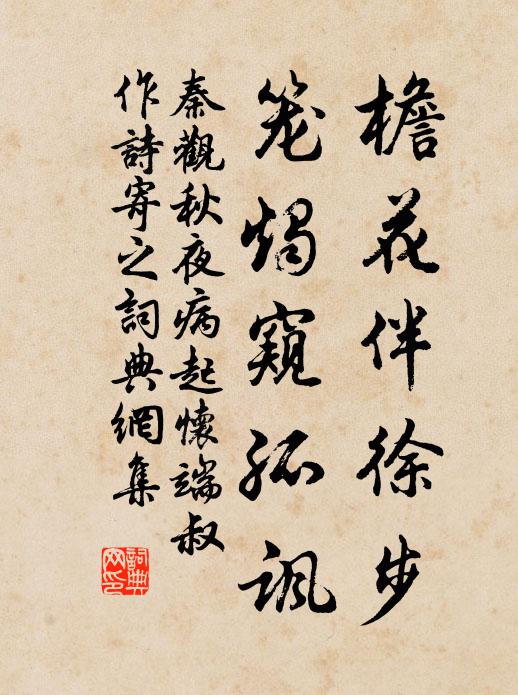 檐花伴徐步
笼燭窺孤諷
秦觀秋夜病起懷端叔
作詩寄之詞典網集
詞典
网印